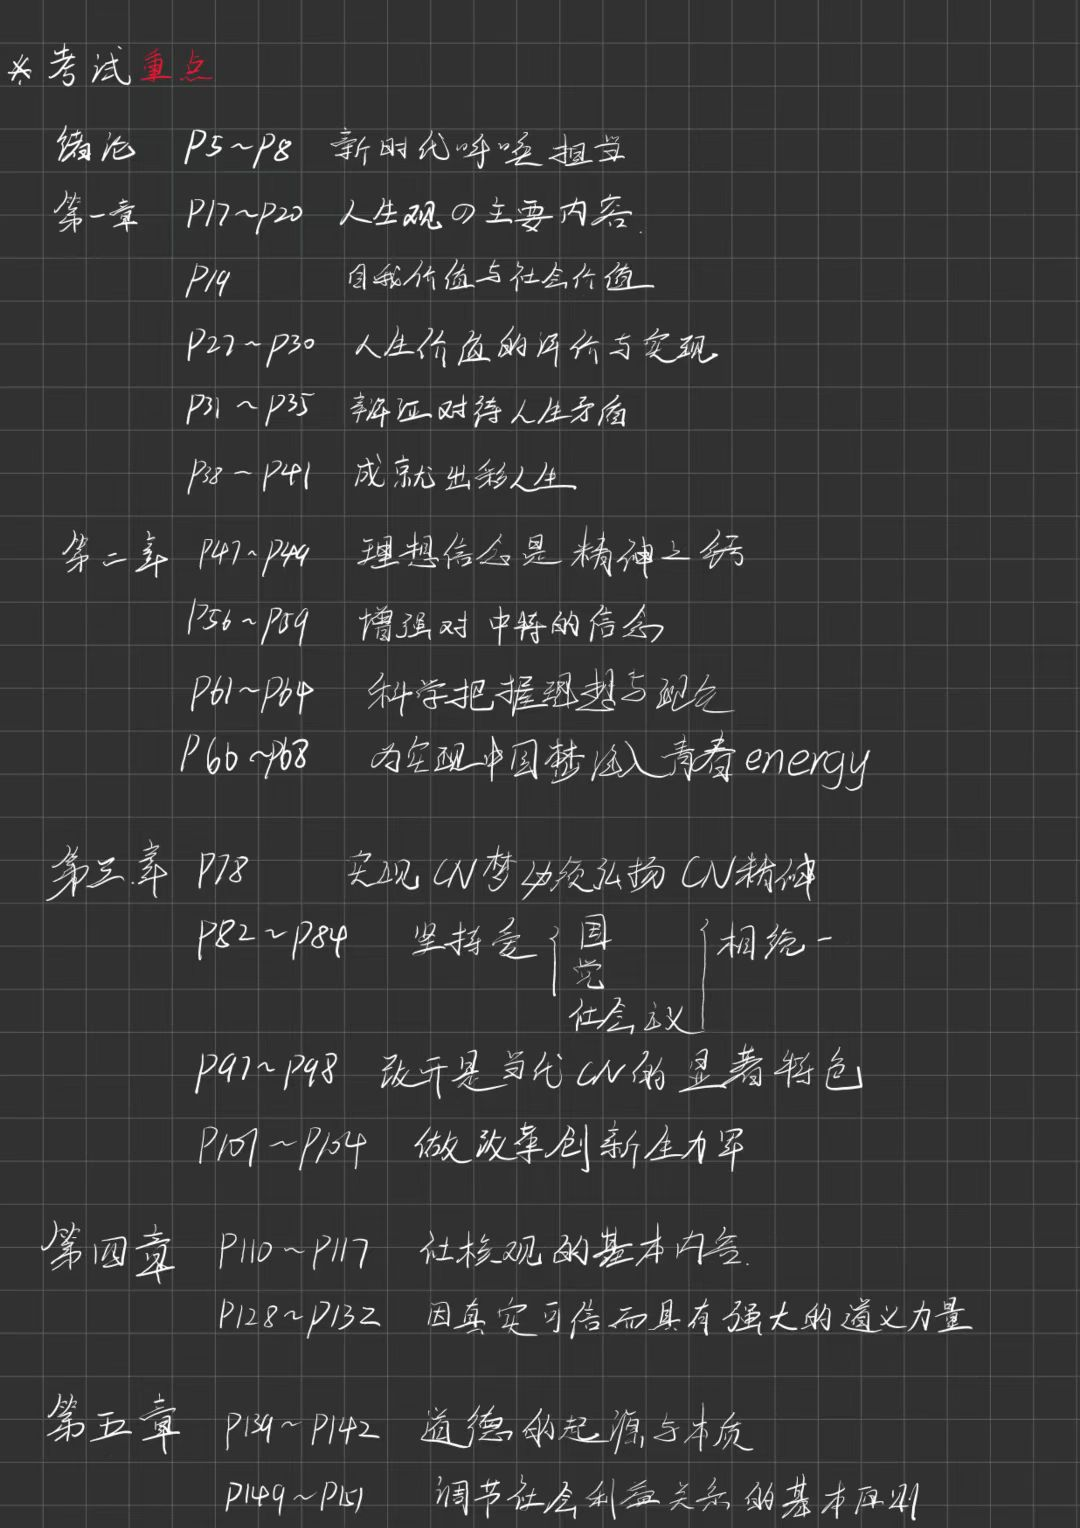 *考试重点
绪论 P5~P8 新时代呼唤担当
第一章 P17~P20 人生观の主要内容.
P19 自我价值与社会价值
P27~P30 人生价值的评价与实现
P31~P35 辩证对待人生矛盾
P38~P41 成就出彩人生
第二章 P47~P49 理想信念是精神之钙
P56~P59 增强对中特的信念
P61~P64 科学把握理想与现实
P66~P68 为实现中国梦注入青春energy
第三章 P78 实现CN梦必须弘扬CN精神
P82~P84 坚持爱{国 党 社会主义}相统一
P97~P98 改开是当代CN的显著特色
P101~P104 做改革创新生力军
第四章 P110~P117 社核观的基本内容.
P128~P132 因真实可信而具有强大的道义力量
第五章 P139~P142 道德的起源与本质
P149~P151 调节社会利益关系的基本原则